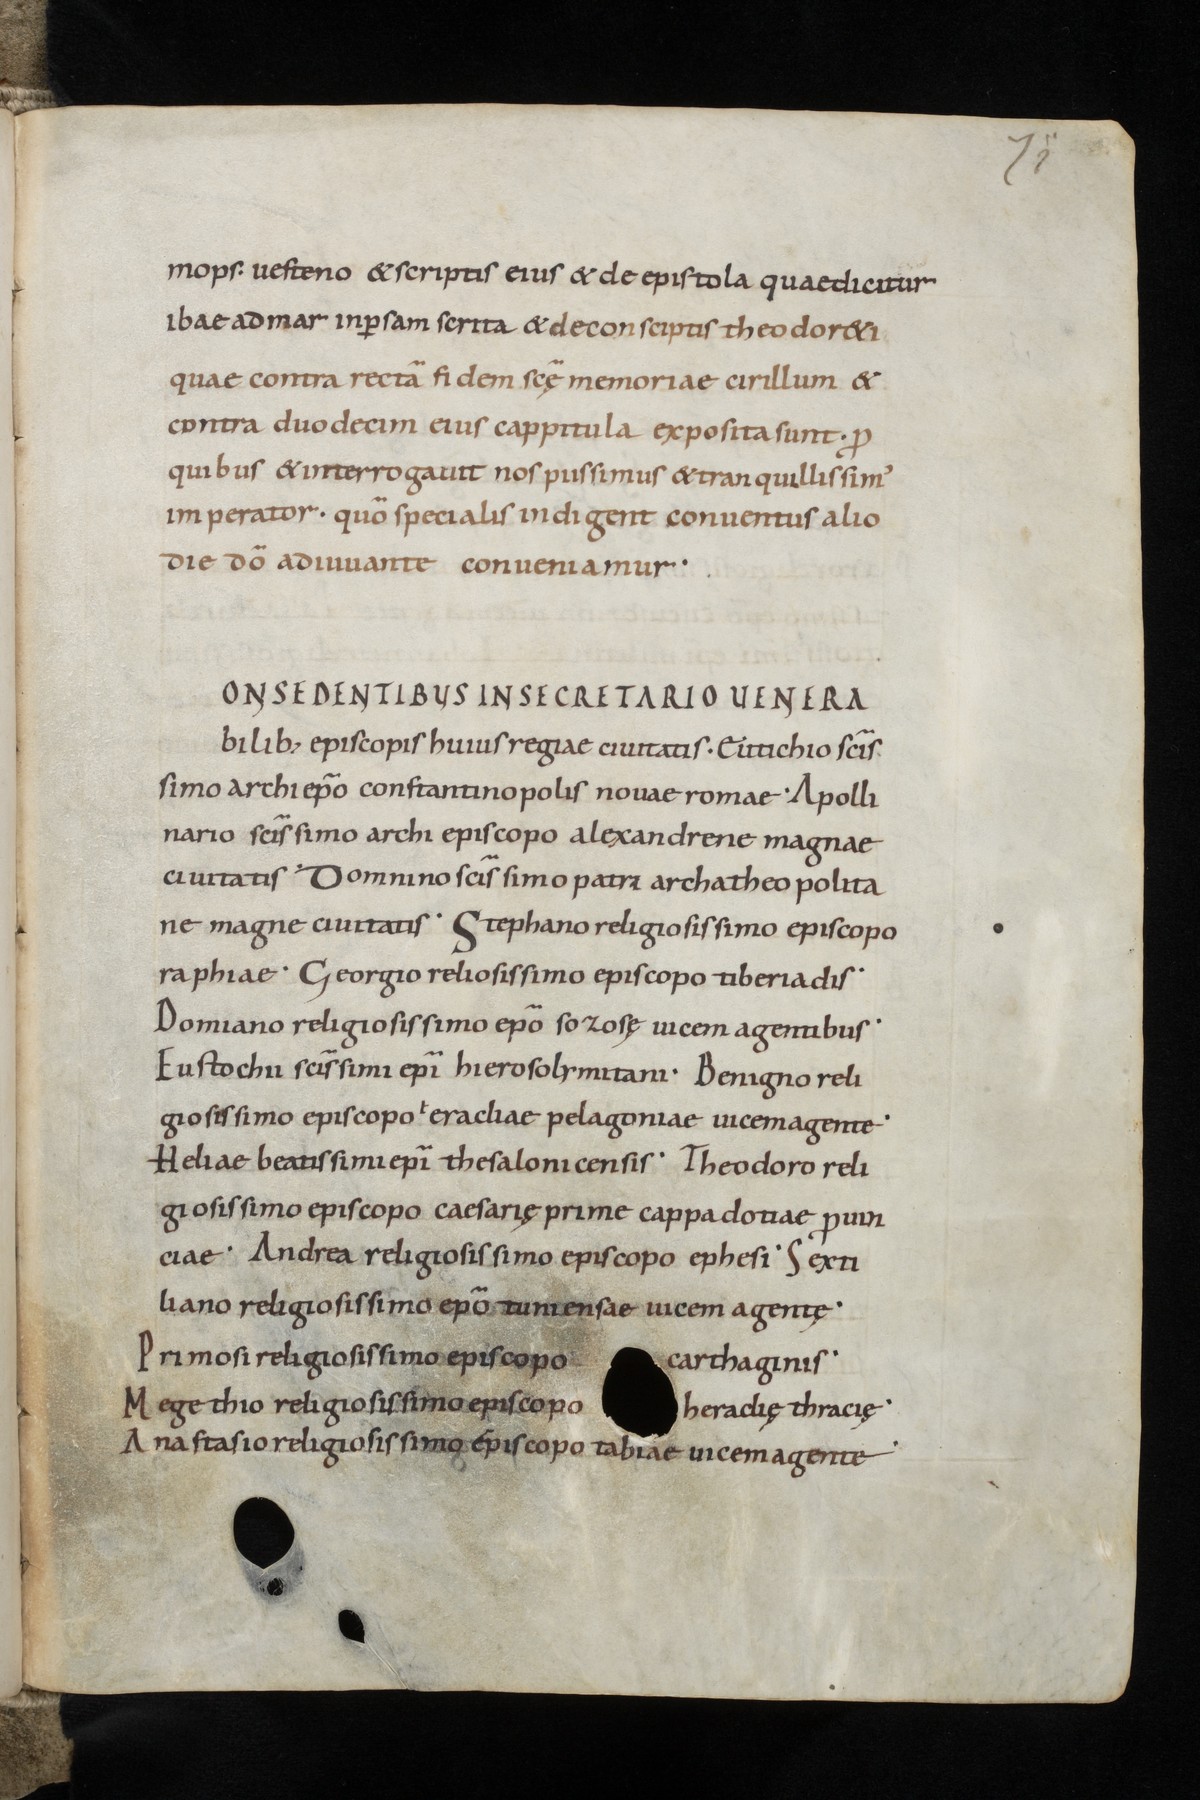 75
mops. uesteno & scriptis eius & de epistola quae dicitur
ibae ad mar inꝑsam scrita & de con sciptis theodor&i
quae contra rectā fidem scę̄ memoriae cirillum &
contra duodecim eius cappitula exposita sunt. ꝓ
quibus & interrogauit nos piissimus & tranquillissim᾿
imperator. quō specialis indigent conuentus alio
die dō adiuuante conueniamur.
ONSEDENTIBUS IN SECRETARIO UENERA
bilib; episcopis huius regiae ciuitatis. Eutichio scīs
simo archiep̄o constantinopolis nouae romae. Apolli
nario scīssimo archi episcopo alexandrene magnae
ciuitatis. Domnino scīssimo patri archatheopolita
ne magne ciuitatis. Stephano religiosissimo episcopo
raphiae. Georgio reliosissimo episcopo tiberiadis.
Domiano religiosissimo ep̄o sozosę uicem agentibus.
Eustochii scīssimi ep̄i hierosolymitani. Benigno reli
giosissimo episcopo eracliae pelagoniae uicem agente.
Heliae beatissimi ep̄i thesalonicensis. Theodoro reli
giosissimo episcopo caesarię prime cappadotiae ꝓuin
ciae. Andrea religiosissimo episcopo ephesi. Sexti
liano religiosissimo ep̄o tuniensae uicem agentę.
Primosi religiosissimo episcopo carthaginis.
Megethio religiosissimo episcopo heraclię thracię.
Anastasio religiosissimo episcopo tabiae uicem agente.